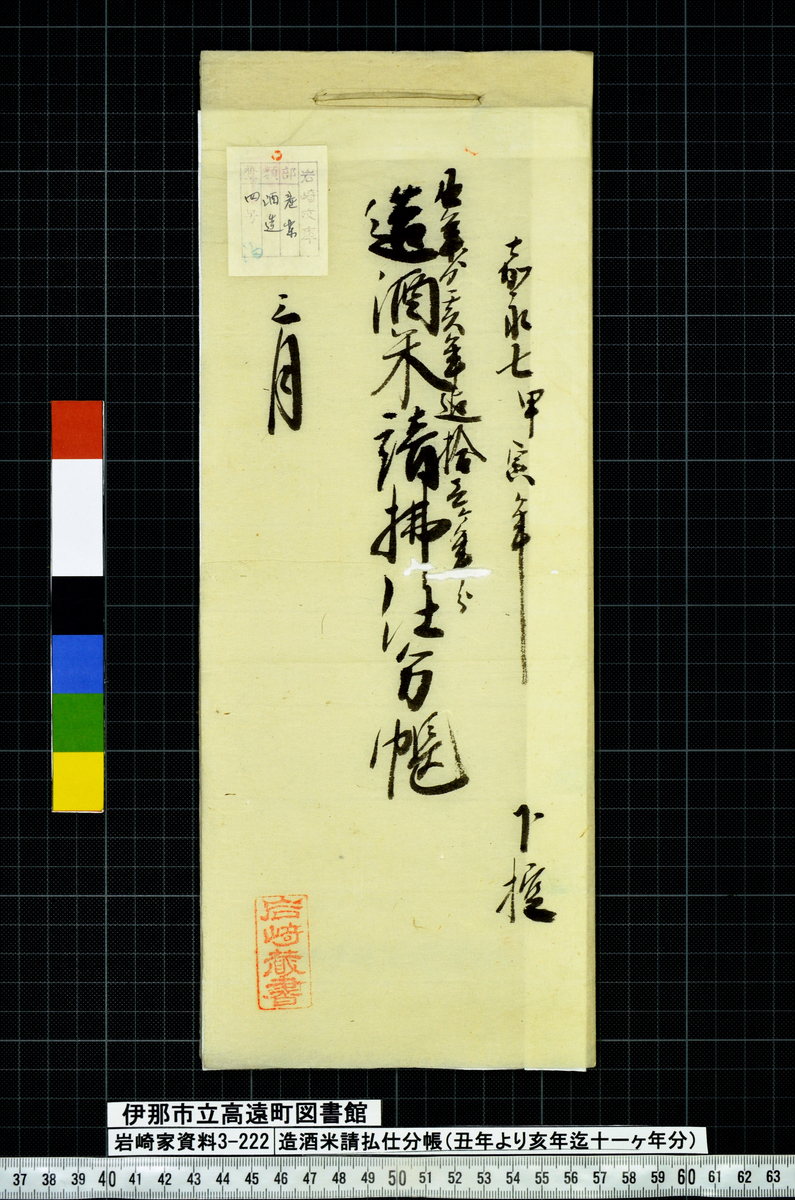 嘉永七甲寅年 下控
丑年分ゟ亥年迄拾壱ヶ年分
造酒米請拂仕分帳
三月
岩崎文庫
部 産業
類 酒造
四号
岩崎蔵書
伊那市立高遠町図書館
岩崎家資料3-222 造酒米請払仕分帳(丑年より亥年迄十一ヶ年分)
37 38 39 40 41 42 43 44 45 46 47 48 49 50 51 52 53 54 55 56 57 58 59 60 61 62 63